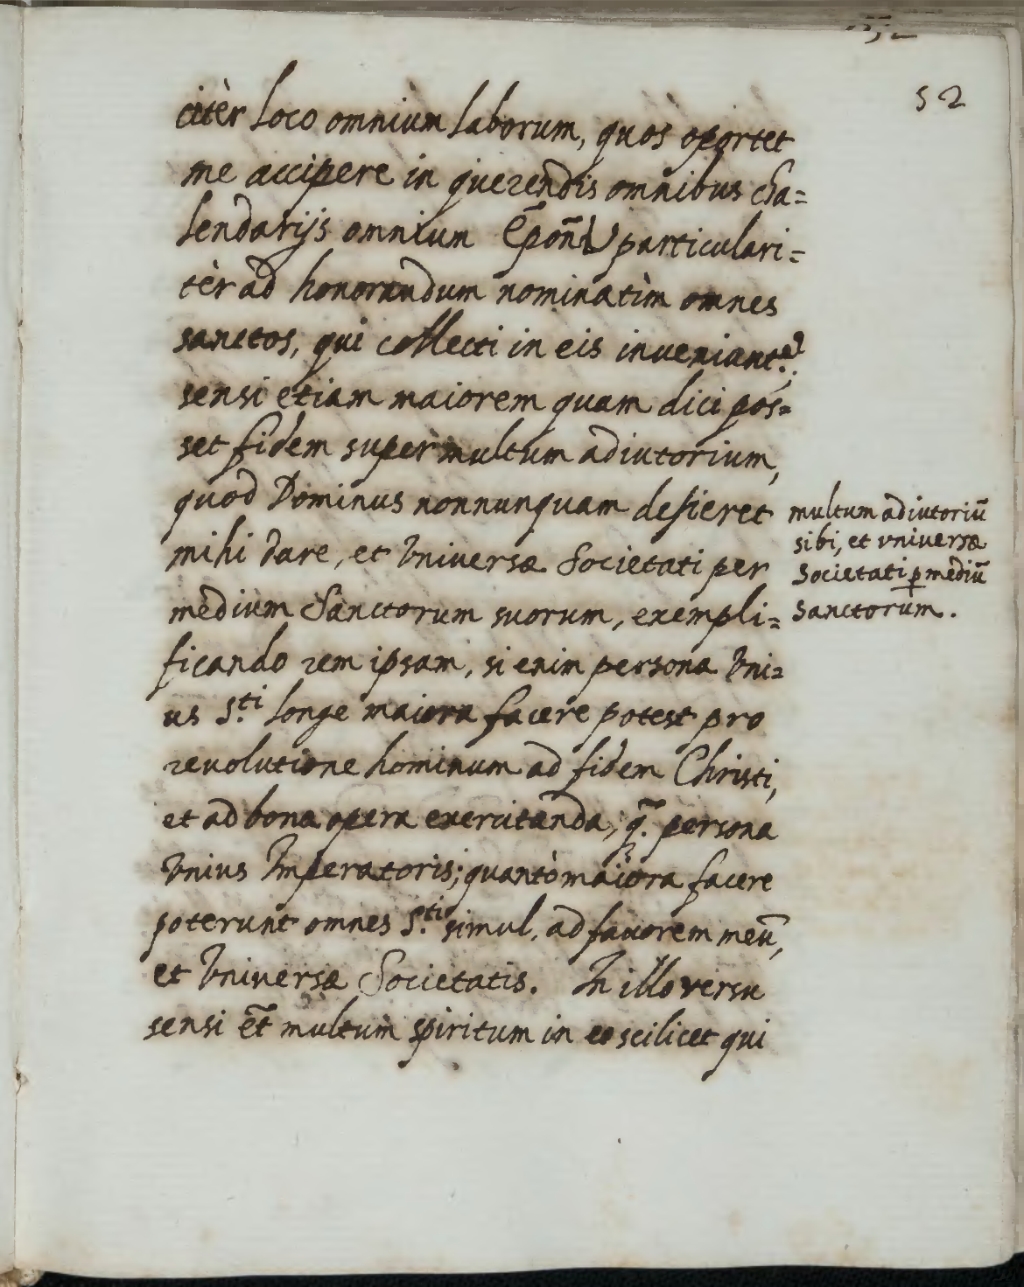 52
citèr loco omnium laborum, quos oportet
me accipere in querendis omnibus cha=
lendarijs omnium particulari=
tèr ad honorandum nominatìm omnes
sanctos, qui collecti in eis inveniant.r
sensi etiam maiorem quam dici pos=
set fidem super multum adiutorium,
quod Dominus nonnunquam desieret
mihi dare, et Universæ Societati per
medium Sanctorum suorum, exempli=
ficando rem ipsam, si enim persona Uni=
us S.ti longe maiora facere potest pro
revolutione hominum ad fidem Christi,
et ad bona opera exercitanda, q̃. persona
Unius Imperatoris; quantò maiora facere
poterunt omnes S.ti simul, ad favorem meũ,
et Universæ Societatis. In illo versu
sensi et̃ multum spiritum in eo scilicet qui
multum adiutoriũ
sibi, et universæ
Societati p̱ mediũ
Sanctorum.